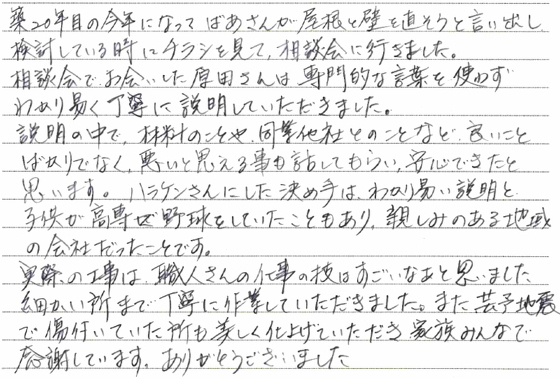 築20年目の今年になって ばあさんが 屋根と壁を直そうと言い出し
検討している時にチラシを見て、相談会に行きました。
相談会でお会いした 原田さんは 専門的な言葉を使わず
わかり易く丁寧に説明していただきました。
説明の中で、材料のことや、同業他社とのことなど、良いこと
ばかりでなく、悪いと思える事も話してもらい、安心できたと
思います。 ハラケンさんにした決め手は、わかり易い説明と
子供が高専で野球をしていたこともあり、親しみのある地域
の会社だったことです。
実際の工事は、職人さんの仕事の技はすごいなあと思いました
細かい所まで丁寧に作業していただきました。また 芸予地震
で傷付いていた所も美しく仕上げていただき 家族みんなで
感謝しています。ありがとうございました